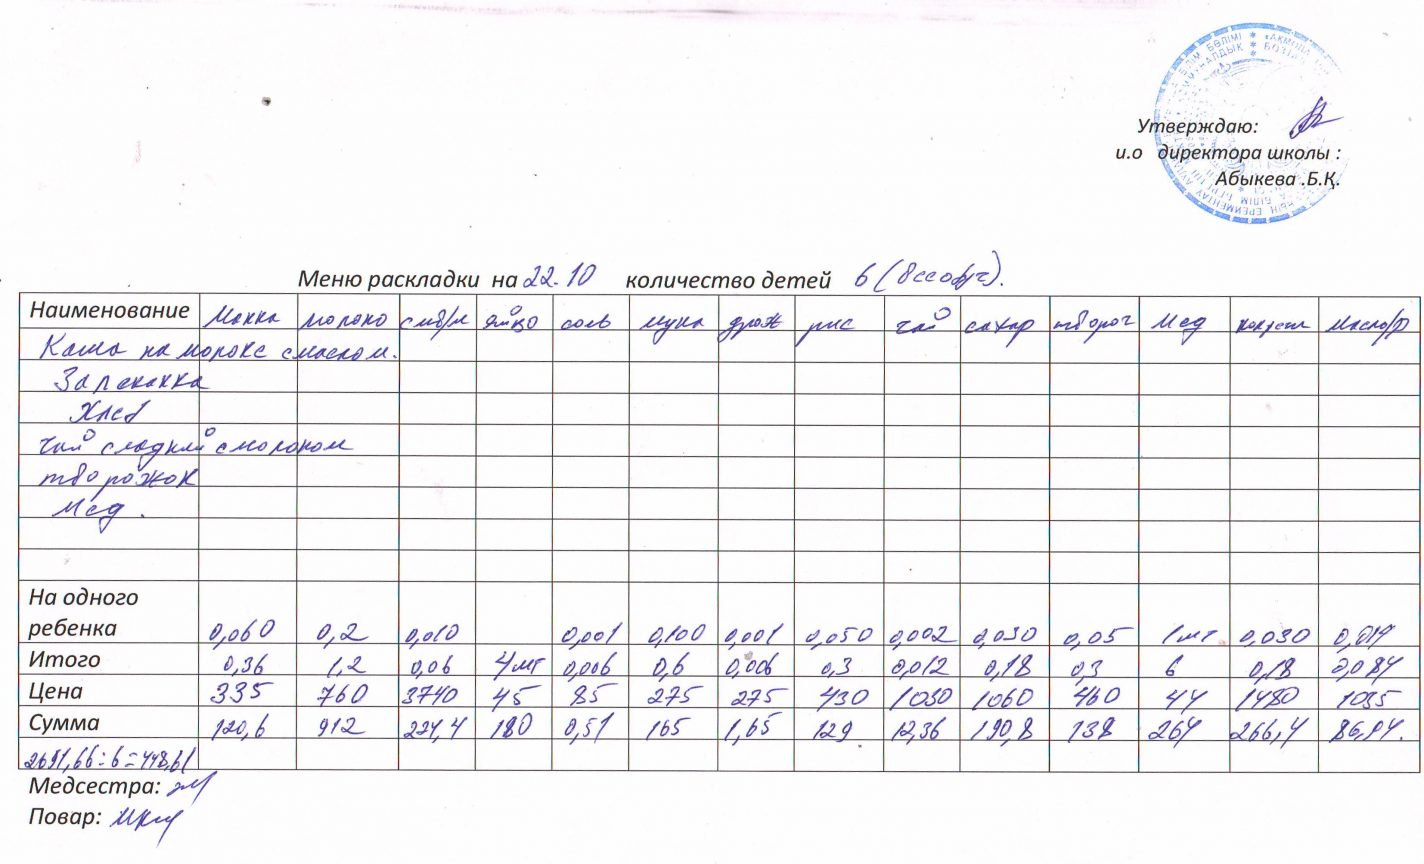 Утверждаю:
и.о директора школы :
Абыкева .Б.Қ.
Меню раскладки на 22.10 количество детей 6 (
Наименование Манка молоко сл б/м яйцо соль мука дрож рис чай сахар творог Мед Масло/р
Каша на молоке с маслом.
Запеканка
Хлеб
чай сладкий с молоком
творожок
Мед .
На одного
ребенка 0,060 0,2 0,010 0,001 0,100 0,001 0,050 0,002 0,030 0,05 1шт 0,030 0,014
Итого 0,36 1,2 0,06 4шт 0,006 0,6 0,006 0,3 0,012 0,18 0,3 6 0,18 0,084
Цена 335 760 3740 45 85 275 275 430 1030 1060 460 44 1480 1035
Сумма 120,6 912 224,4 180 0,51 165 1,65 129 12,36 190,8 138 264 266,4 86,94.
2691,66:6=448,61
Медсестра:
Повар: